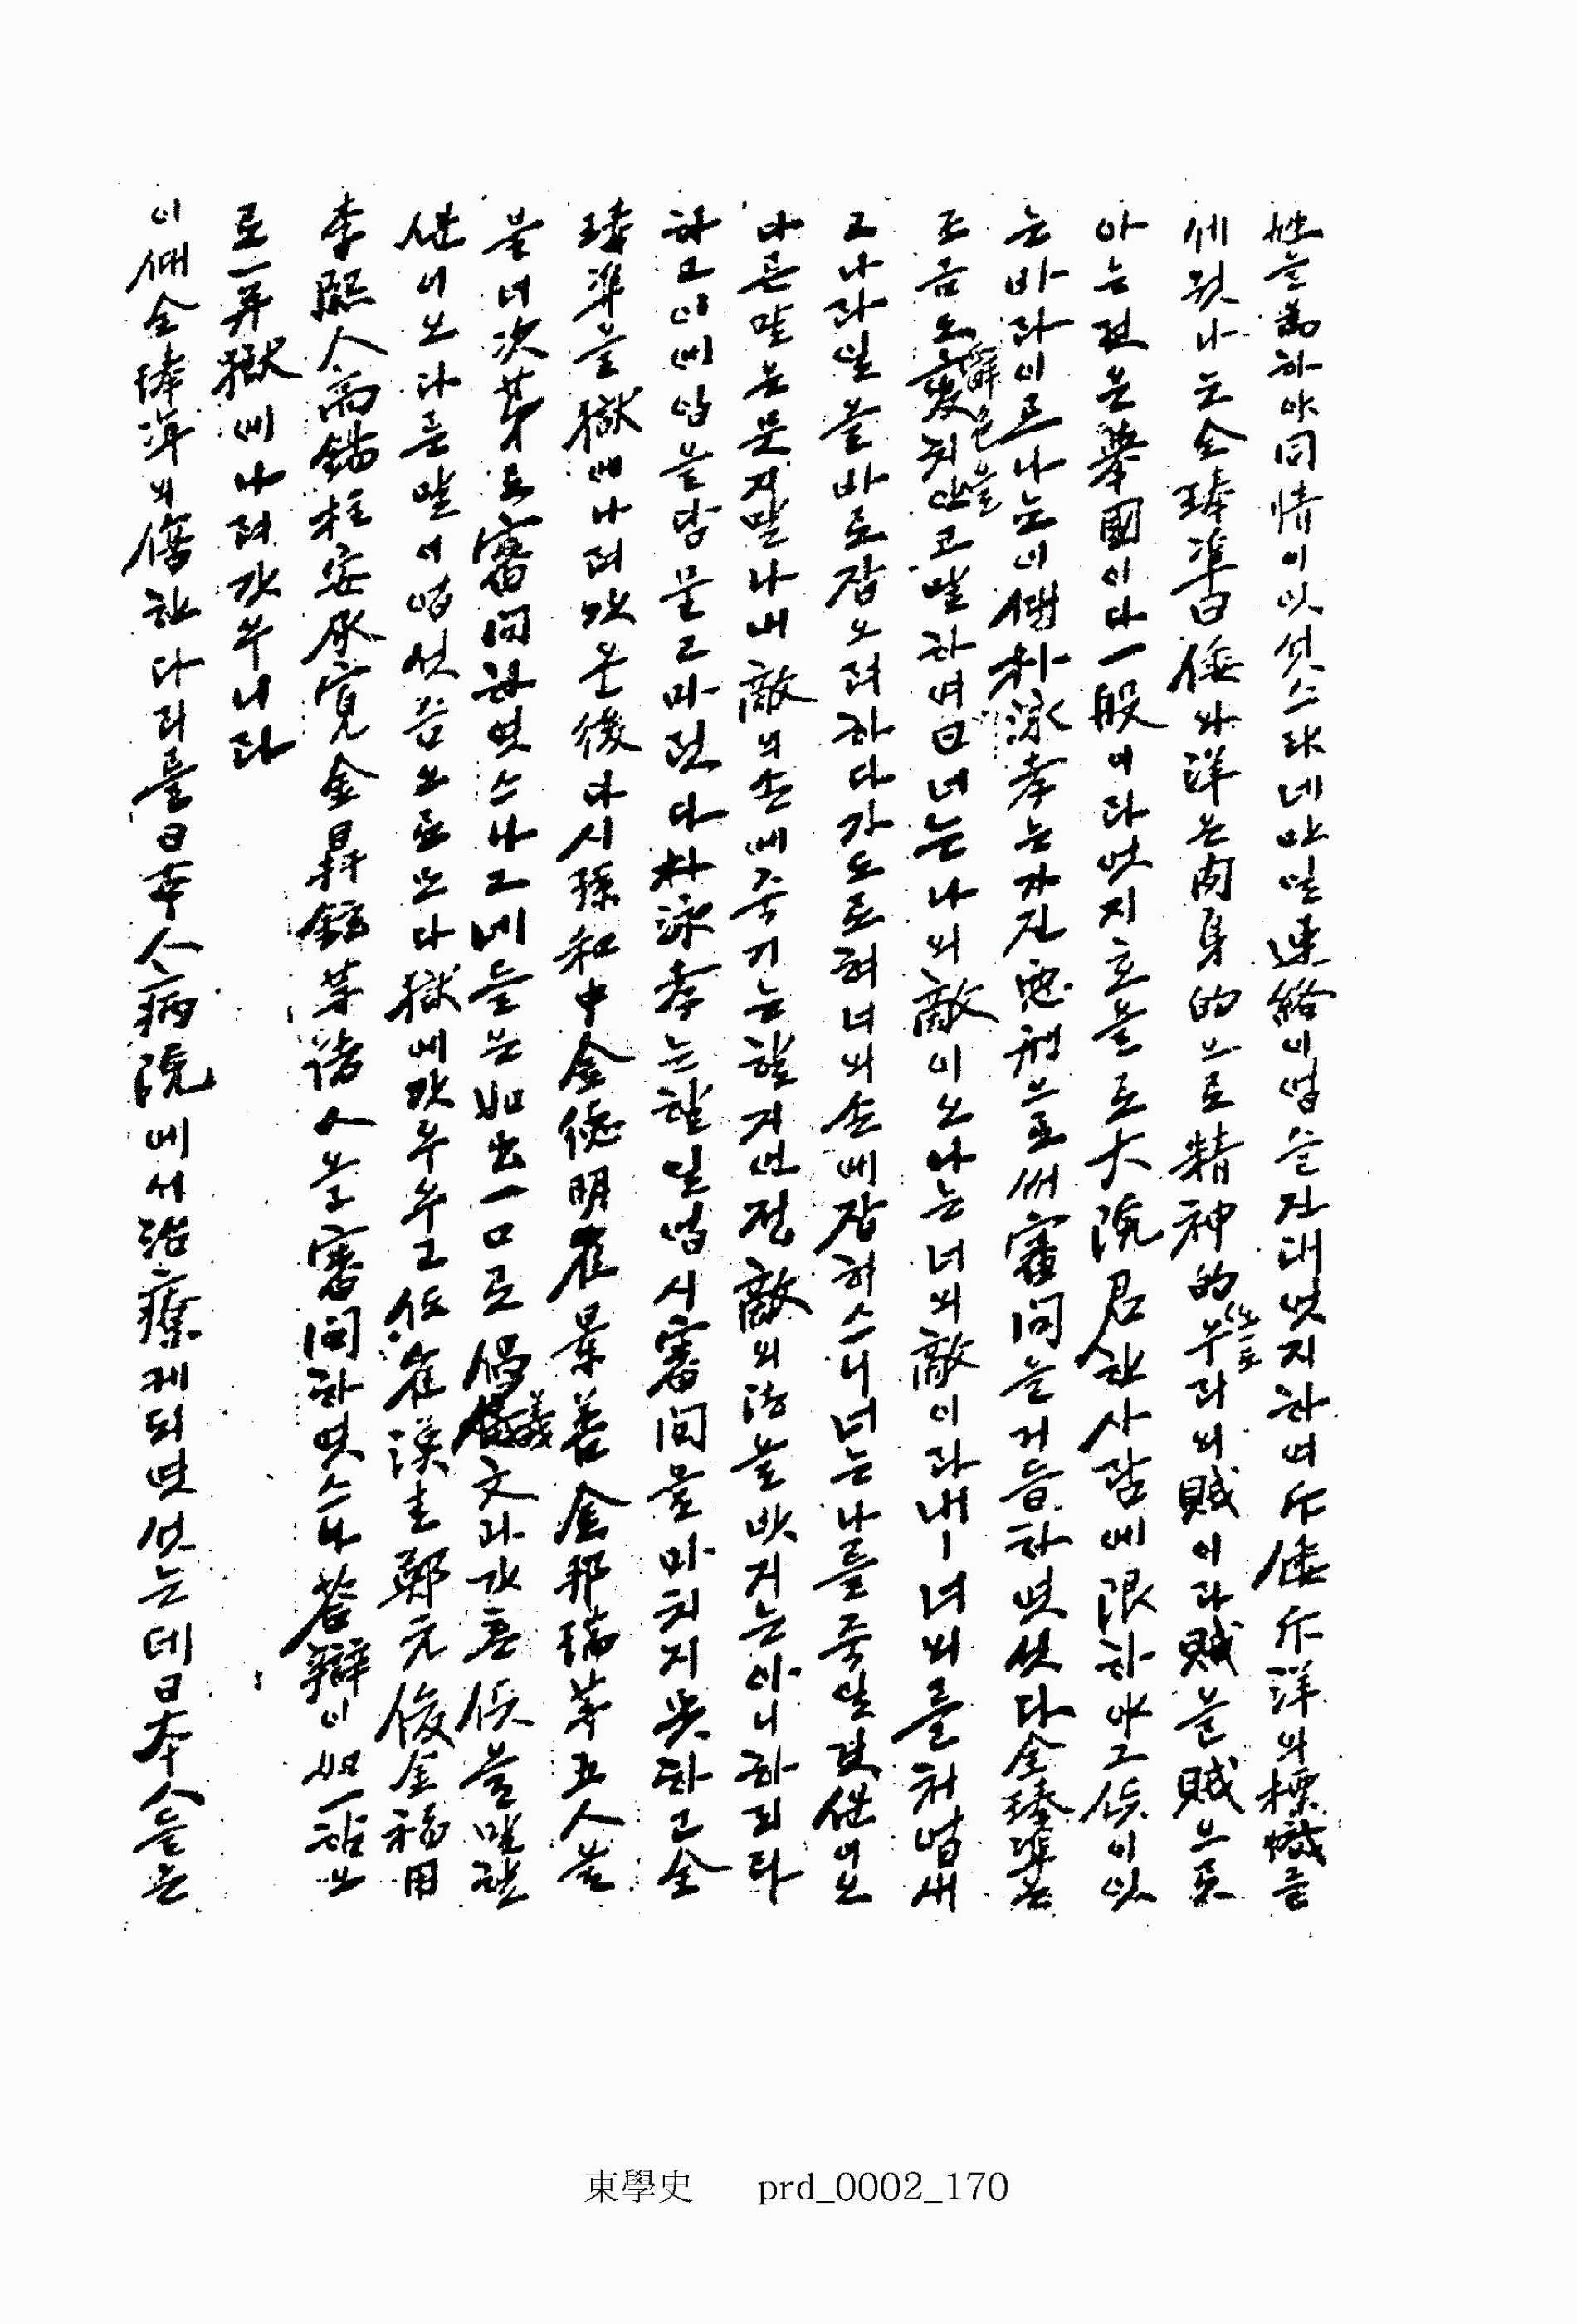 姓을 爲하야 同情이 잇섯스랴 네 만일 連絡이 업슬진대 엇지하여 斥倭斥洋의 標幟를
세웟나 는 全琫準曰 倭와 洋은 肉身的으로 精神的으로 우리의 賊이라 賊을 賊으로
아는 것은 擧國이 다 一般이라 엇지 호을로 大院君 한 사람에 限하야 그 ᄯᅳᆺ이 잇
는 바라 이르나뇨 이ᄯᅢ 朴泳孝는 가진 惡刑으로ᄡᅥ 審問을 거듭하엿섯다 全琫準은
조금도 辭色을 變치 안고 말하여 曰 너는 나의 敵이오 나는 너의 敵이라 내ㅣ 너의를 처업새
고 나라일을 바로잡으려 하다가 도로혀 너의 손에 잡혀스니 너는 나를 죽일 것ᄲᅮᆫ이오
다른 말은 뭇지 말나 내 敵의 손에 죽기는 할지언정 敵의 法을 밧지는 아니하리라
하고 이에 입을 담을고 마럿다 朴泳孝는 할일업시 審問을 마치지 못하고 全
琫準을 獄에 나려 갓운 後 다시 孫和中 金德明 崔景善 金邦瑞 等 五人을
불너 次第로 審問하엿스나 그네들은 如出一口로 倡義文과 갓흔 ᄯᅳᆺ을 말할
ᄲᅮᆫ이오 다른 말이 업섯슴으로 모다 獄에 갓우우고 ᄯᅩ 崔溪圭 鄭元俊 金福用
李熙人 高錫柱 安承寬 金昇鉉 等 諸人을 審問하엿스나 答辯이 如一함으
로 一幷 獄에 나려 갓우니라
이ᄯᅢ 全琫準의 傷한 다리를 日本人 病院에서 治療케 되엿섯는데 日本人들은
東學史 prd_0002_170